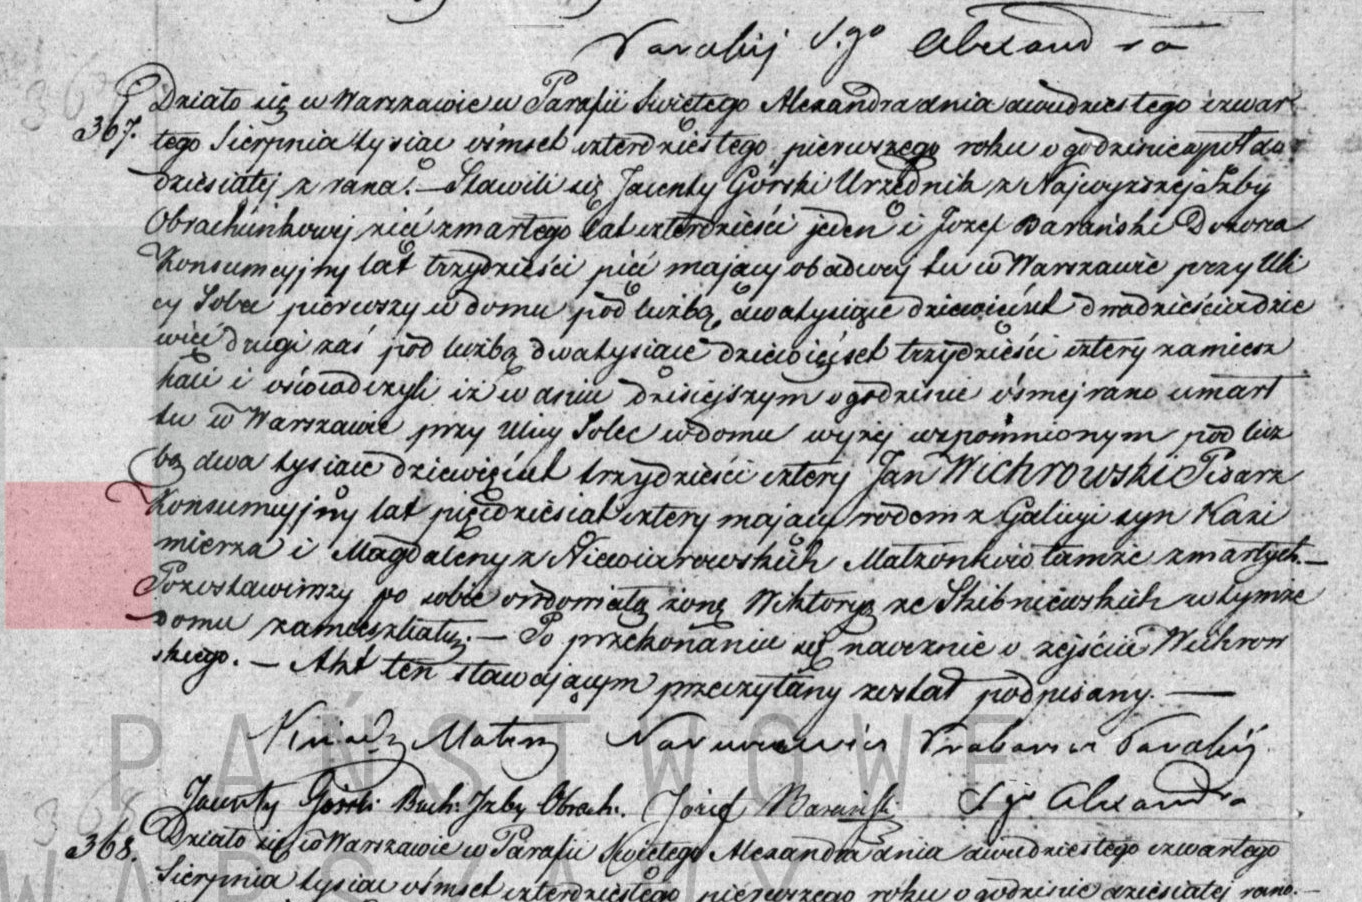 Parafij S.go Alexandra
367. Działo się w Warszawie w Parafii Świętego Alexandra dnia dwudziestego czwar
tego Sierpnia tysiąc ośmset czterdziestego pierwszego roku o godzinie wpół do
dziesiątej z rana. — Stawili się Jacenty Górski Urzędnik z Najwyższej Izby
Obrachunkowej zięć zmartego lat czterdzieści jeden i Józef Barański Dozorca
Konsumcyjny lat trzydzieści pięć mający obadwaj tu w Warszawie przy Uli
cy Solec pierwszy w domu pod liczbą dwatysiące dziewięćset dwadzieścia dzie
więć drugi zaś pod liczbą dwatysiące dziewięćset trzydzieści cztery zamiesz
kali i oświadczyli iż w dniu dzisiejszym o godzinie ósmej rano umarł
tu w Warszawie przy Ulicy Solec w domu wyżej wspomnionym pod licz
bą dwa tysiące dziewięćset trzydzieści cztery Jan Wichrowski Pisarz
Konsumcyjny lat pięćdziesiąt cztery mający rodem z Galicyi syn Kazi
mierza i Magdaleny z Niewiarowskich Małżonków tamże zmarłych. —
Pozostawiwszy po sobie owdowiałą żonę Wiktoryą ze Skibniewskich w tymże
domu zamieszkałą. — Po przekonaniu się naocznie o zejściu Wichrow
skiego. — Akt ten stawającym przeczytany został podpisany. —
Xiądz Marcin Wikariusz Parafij
Jacenty Górski Buch: Izby Obrach. Józef Barański S.go Alexandra
368. Działo się w Warszawie w Parafii Świętego Alexandra dnia dwudziestego czwartego
Sierpnia tysiąc ośmset czterdziestego pierwszego roku o godzinie dziesiątej rano. —
367
368
PAŃSTWOWE
WARSZAW